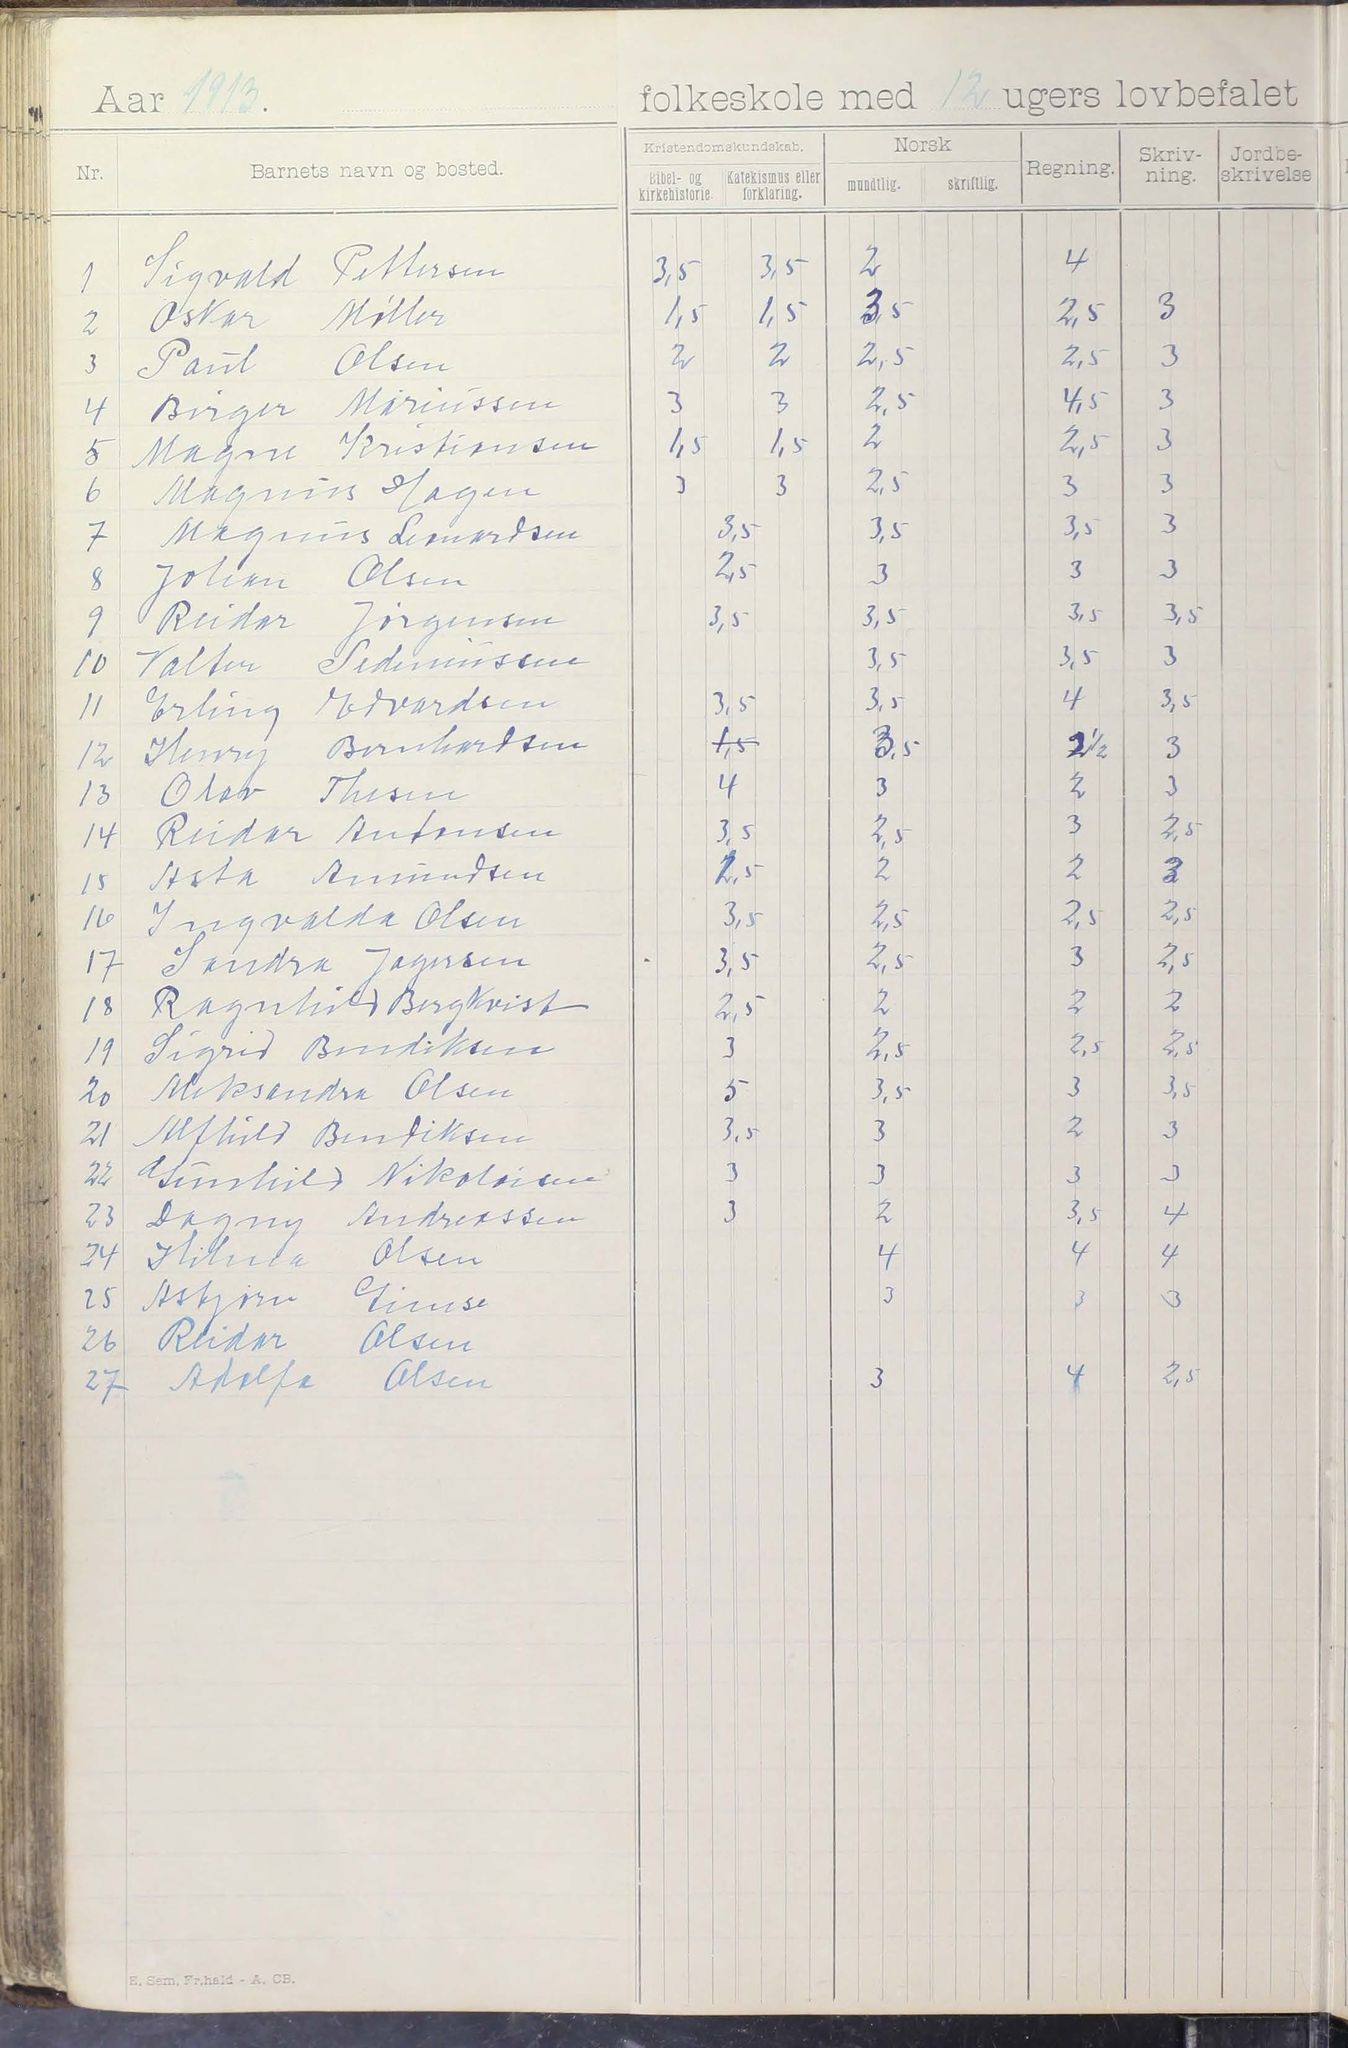 Aar 1913. folkeskole med 12 ugers lovbefalet
Nr. Barnets navn og bosted. Kristendomskundskab. Norsk Regning. Skriv-ning. Jordbe-skrivelse
Bibel- og kirkehistorie. Katekismus eller forklaring. mundtlig. skriftlig.
1 Sigvald Pettersen 3,5 3,5 2 4
2 Oskar Møller 1,5 1,5 3,5 2,5 3
3 Paul Olsen 2 2 2,5 2,5 3
4 Birger Mariussen 3 3 2,5 4,5 3
5 Magne Kristiansen 1,5 1,5 2 2,5 3
6 Magnus Hagen 3 3 2,5 3 3
7 Magnus Leonardsen 3,5 3,5 3,5 3
8 Johan Olsen 2,5 3 3 3
9 Reidar Jørgensen 3,5 3,5 3,5 3,5
10 Valter 3,5 3,5 3
11 Erling Edvardsen 3,5 3,5 4 3,5
12 Henry Bernhardsen 1,5 3,5 2½ 3
13 Olav Thesen 4 3 2 3
14 Reidar Antonsen 3,5 2,5 3 2,5
15 Asta Amundsen 2,5 2 2 3
16 Ingvalda Olsen 3,5 2,5 2,5 2,5
17 Sandra Jagersen 3,5 2,5 3 2,5
18 Ragnhild Bergkvist 2,5 2 2 2
19 Sigrid Bendiksen 3 2,5 2,5 2,5
20 Aleksandra Olsen 5 3,5 3 3,5
21 Alfhild Bendiksen 3,5 3 2 3
22 Gunhild Nikolaisen 3 3 3 3
23 Dagny Andreassen 3 2 3,5 4
24 Hilma Olsen 4 4 4
25 Asbjørn Gimse 3 3 3
26 Reidar Olsen
27 Adolfa Olsen 3 4 2,5
E. Sem, Fr.hald - A. CB.